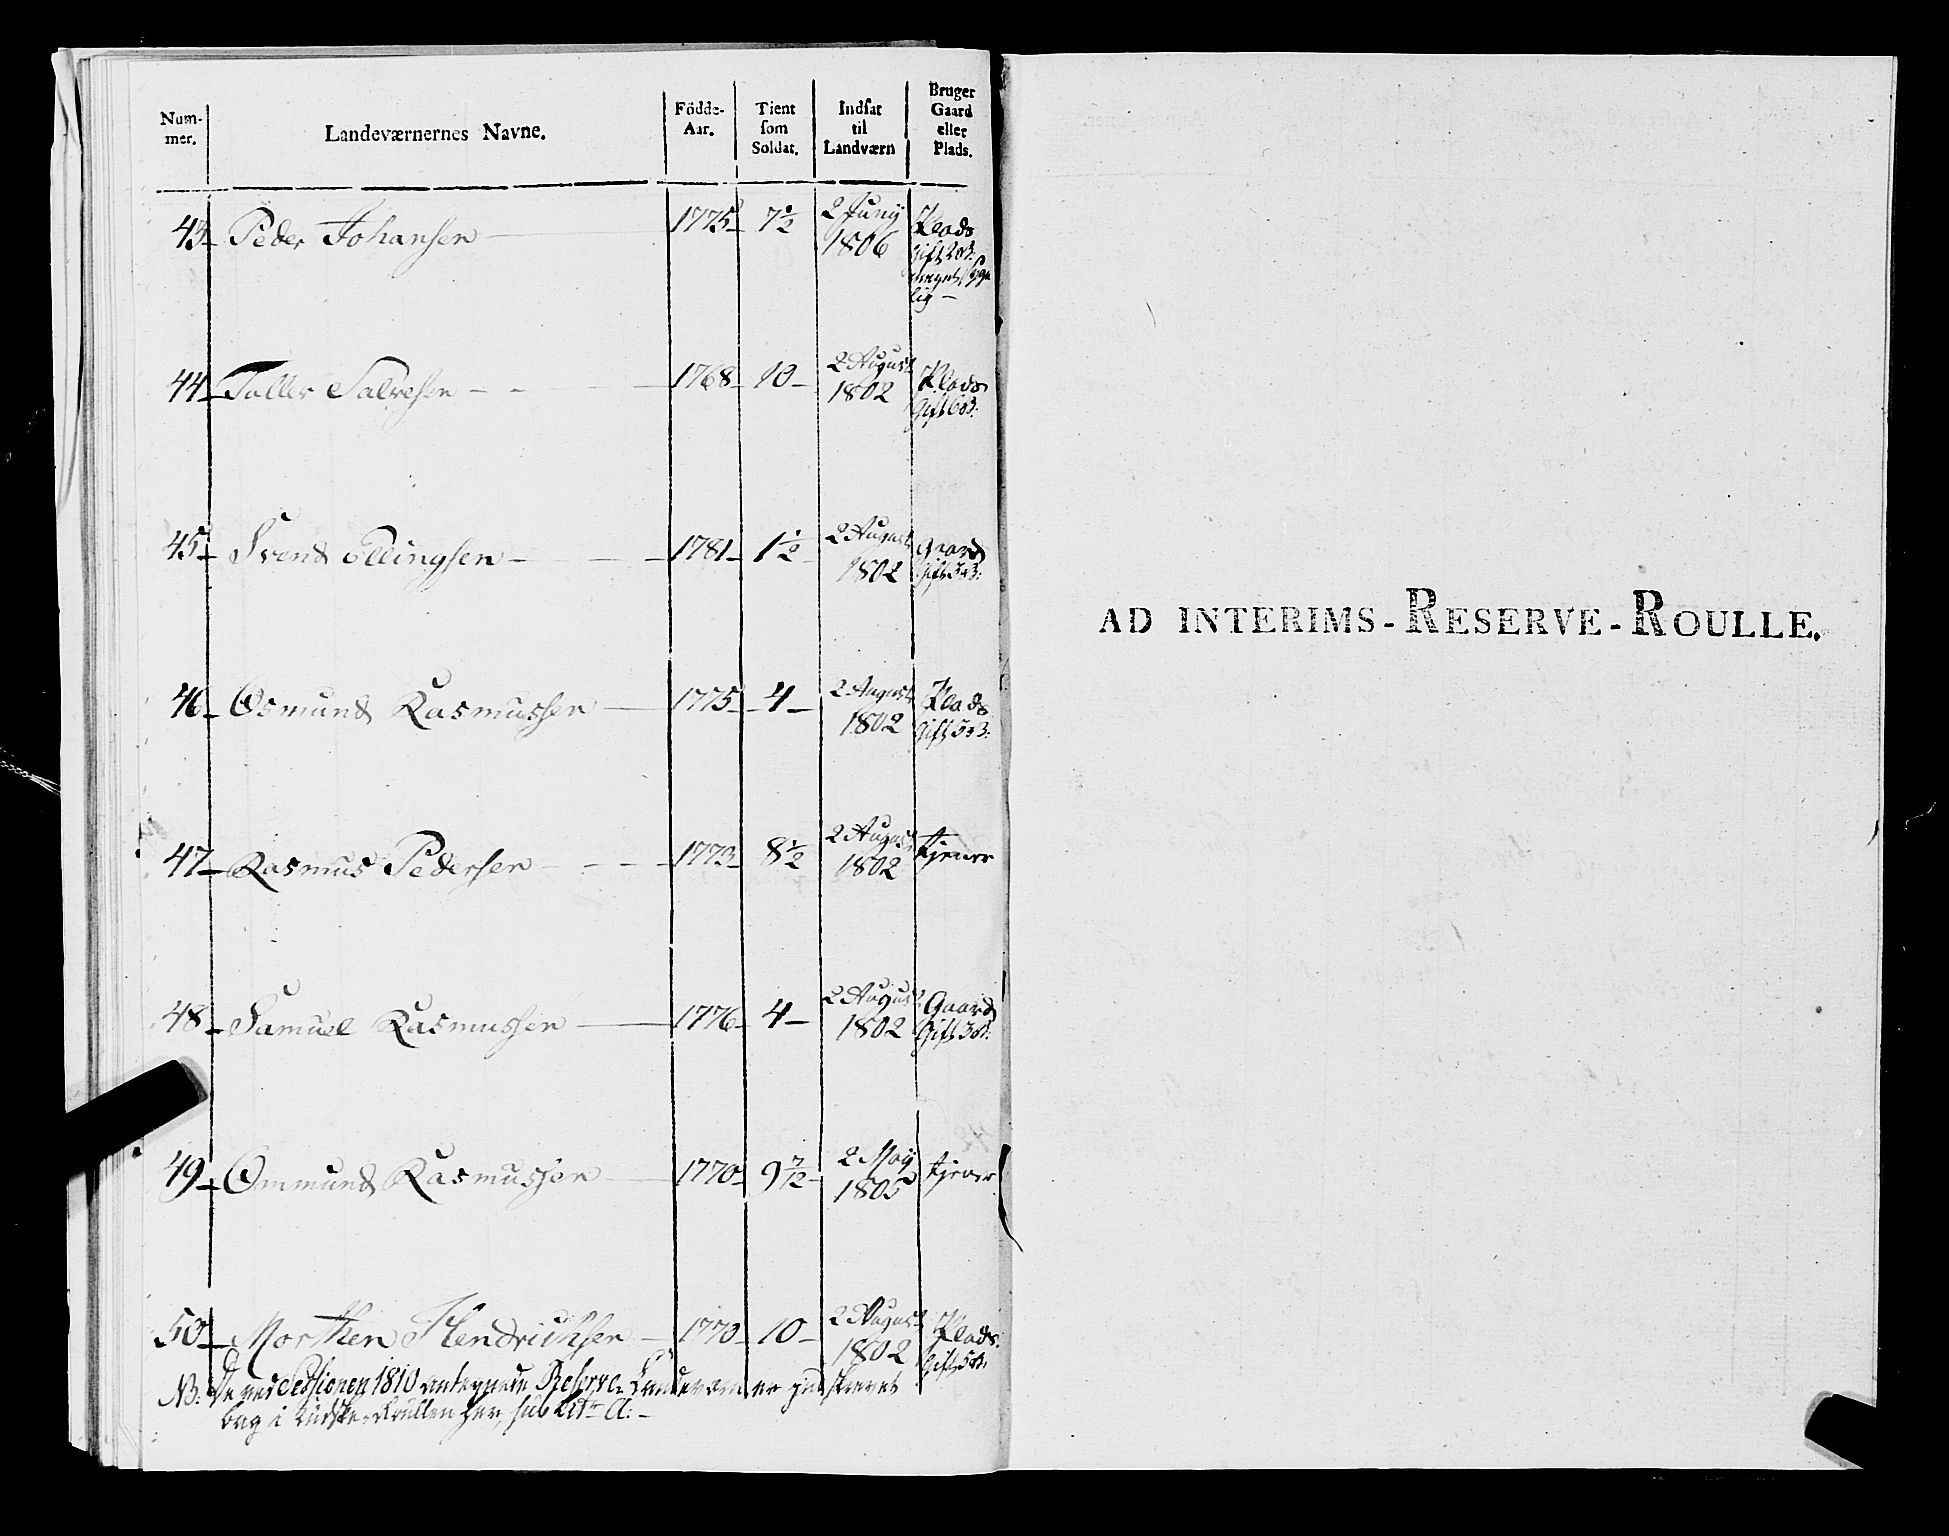 Num-
mer.
Landeværnernes Navne.
Födde-
Aar.
Tient
som
Soldat.
Indsat
til
Landværn
Bruger
Gaard
eller
Plads.
43 Peder Johansen 1775 7½ 2 Juny 1806 Plads
Gift 2 B:
lig
44 Taller Salvesen 1768 10 2 August 1802 Plads
Gift 6 B:
45 Svend Ellingsen 1781 1½ 2 August 1802 Gaard
Gift 3 B:
46 Osmund Rasmussen 1775 4 2 August 1802 Plads
Gift 3 B:
47 Rasmus Pedersen 1773 8½ 2 August 1802 tjener
48 Samuel Rasmussen 1776 4 2 August 1802 Gaard
Gift 3 B:
49 Ommund Rasmussen 1770 9 7/12 2 May 1805 tjener
50 Morthen Hendrichsen 1770 10 2 August 1802 Plads
Gift 5 B:
NB. De ved Sessionen 1810 antegnede Reserve Landeværn er
bag i Rullen her, sub Litr A:
AD INTERIMS-RESERVE-ROULLE.